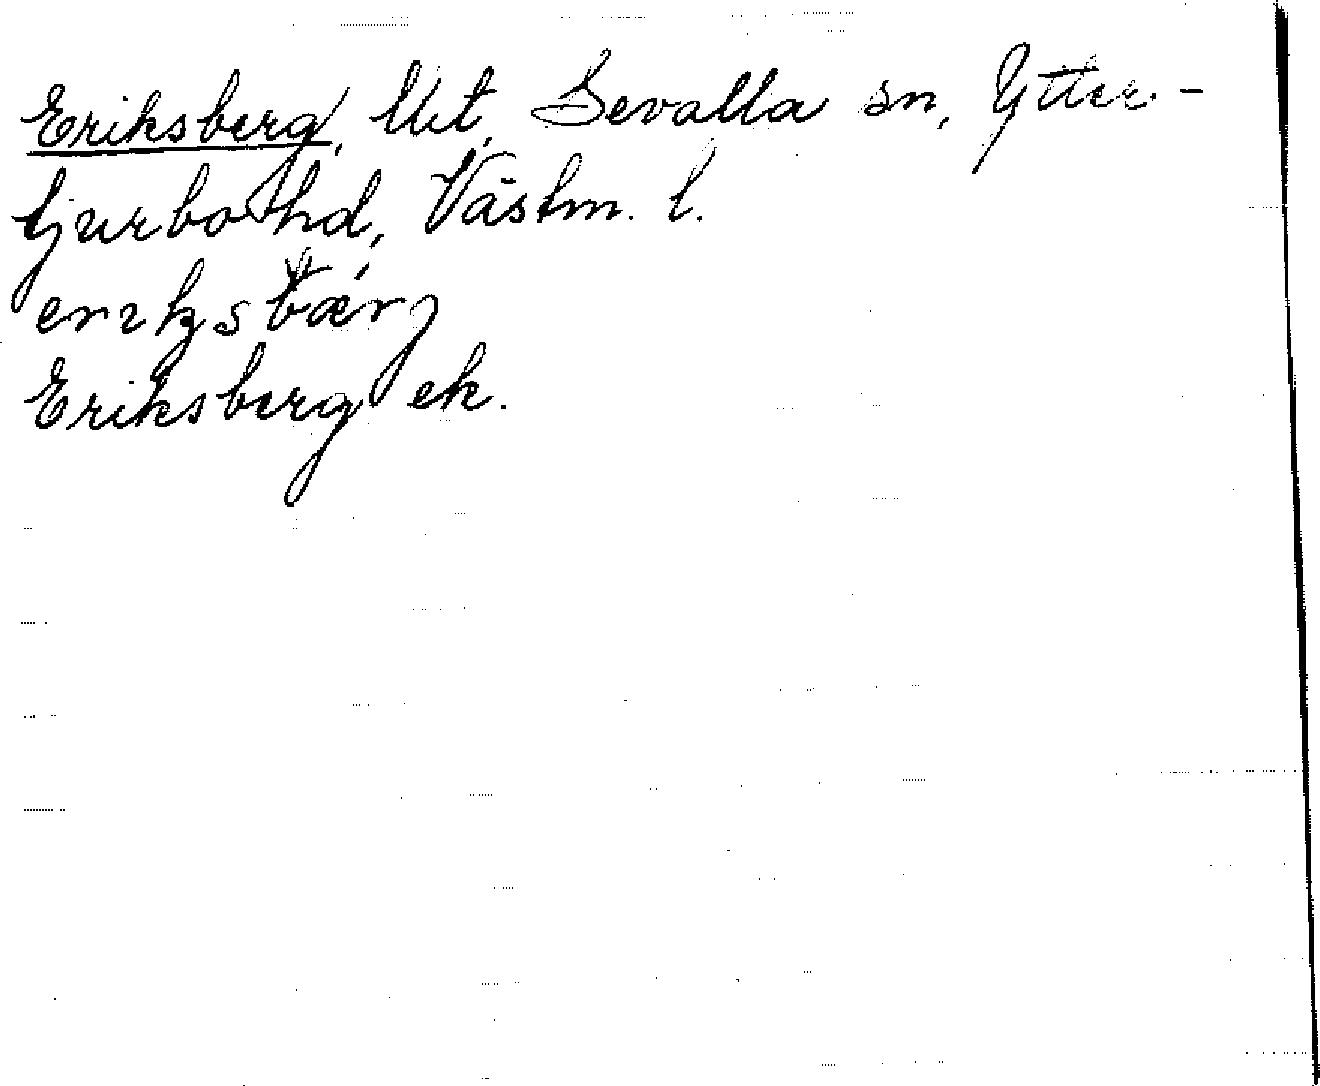 Eriksberg, Utt, Sevalla sn, Ytter-
tjurbo hd, Västm. l.
Eriksberg ek.